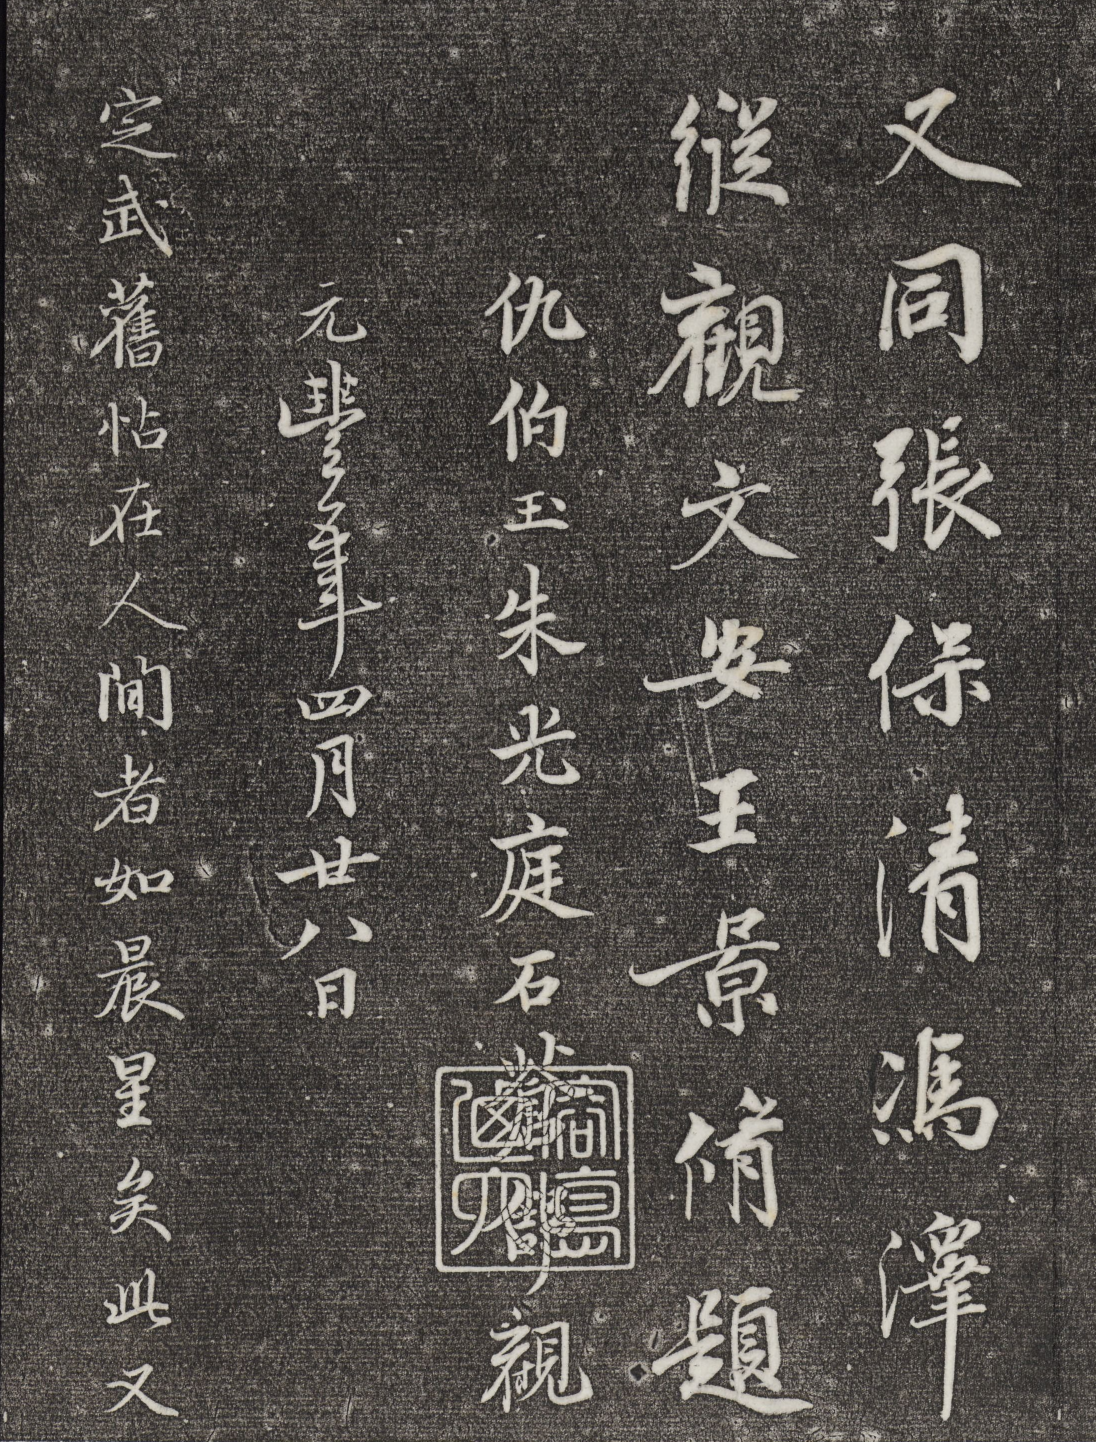 又同張保清馮澤
縱觀文安王景脩題
仇伯玉朱光庭石蒼舒觀
元豐三年四月廿八日
定武舊帖在人間者如晨星矣此又